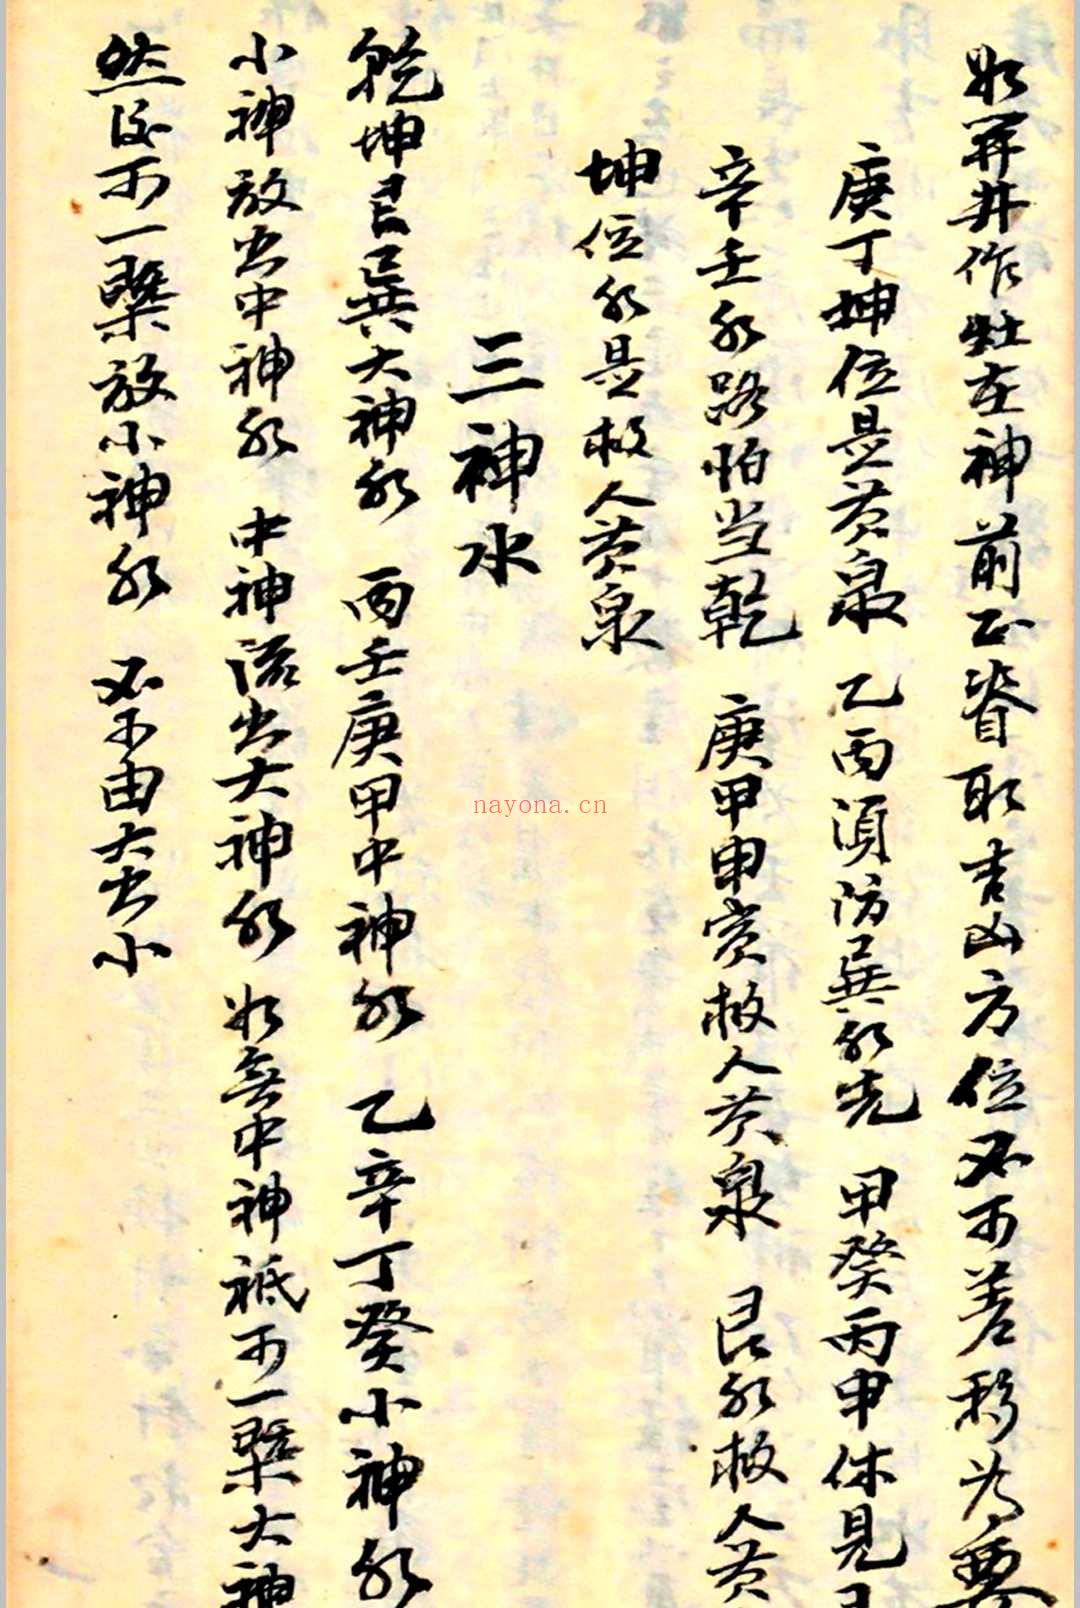 如开井作灶在神前正脊取吉凶方位不可差移为要
庚丁坤位是黄泉 乙丙须防巽水先 甲癸丙申休见
辛壬水路怕当乾 庚甲申宫救人黄泉 艮水救人黄
坤位水是救人黄泉
三神水
乾坤艮巽大神水 丙壬庚甲中神水 乙辛丁癸小神水
小神放出中神水 中神流出大神水 如无中神祗可一槩大神
然后可一槩放小神水 必不由大出小
nayona.cn